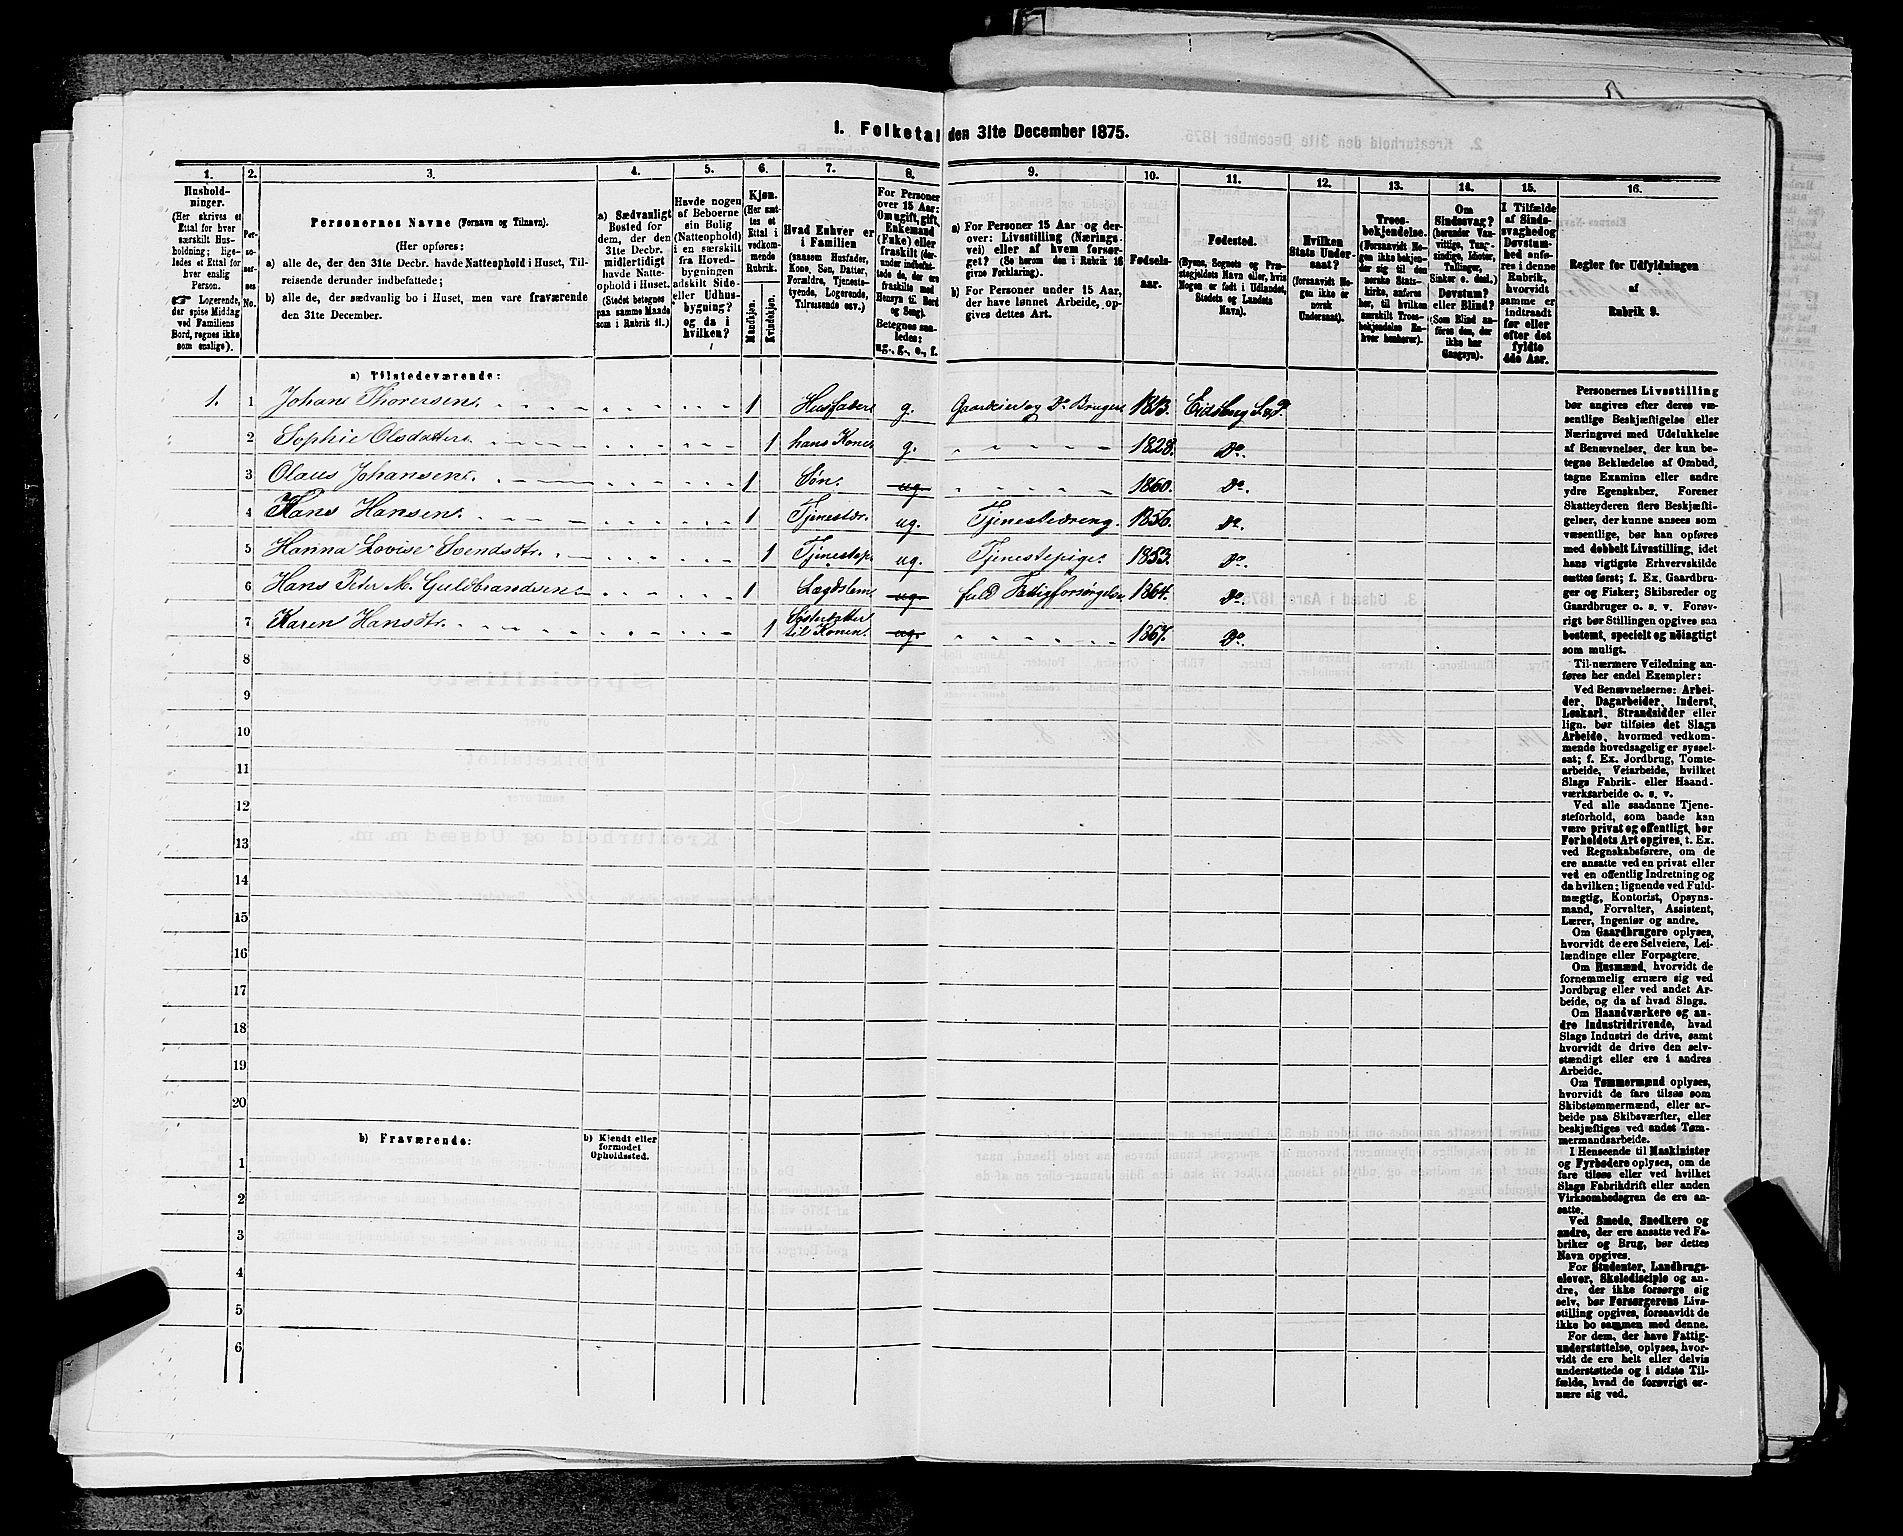 1. Folketal den 31te December 1875.
1. 2. 3. 4. 5. 6. 7. 8. 9. 10. 11. 12. 13. 14. 15. 16.
Hushold-
ninger.
(Her skrives et
Ettal for hver
særskilt Hus-
holdning; lige-
ledes et Ettal for
hver enslig
Person.
☞ Logerende,
der spise Middag
ved Familiens
Bord, regnes ikke
som enslige).
Per-
so-
ner-
nes
No.
Personernes Navne (Fornavn og Tilnavn).
(Her opføres:
a) alle de, der den 31te Decbr. havde Natteophold i Huset, Til-
reisende derunder indbefattede;
b) alle de, der sædvanlig bo i Huset, men vare fraværende
den 31te December.
a) Sædvanligt
Bosted for
dem, der den
31te Decbr.
midlertidigt
havde Natte-
ophold i Huset.
(Stedet betegnes
paa samme Maade
som i Rubrik 11.)
Havde nogen
af Beboerne
sin Bolig
(Natteophold)
i en særskilt
fra Hoved-
bygningen
adskilt Side-
eller Udhus-
bygning?
og da i
hvilken?
Kjøn.
(Her sæt-
tes et
Ettal i
vedkom-
mende
Rubrik.
Mandkjøn.
Kvindekjøn.
Hvad Enhver er
i Familien
(saasom Husfader,
Kone, Søn, Datter,
Forældre, Tjeneste-
tyende, Logerende,
Tilreisende osv.)
For Personer
over 15 Aar:
Om ugift, gift,
Enkemand
(Enke) eller
fraskilt (der-
under indbefat-
tede de, der ere
fraskilte med
Hensyn til Bord
og Seng).
Betegnes saa-
ledes:
ug., g., e., f.
a) For Personer 15 Aar og der-
over: Livsstilling (Nærings-
vei) eller af hvem forsør-
get? (Se herom den i Rubrik 16
givne Forklaring).
b) For Personer under 15 Aar,
der have lønnet Arbeide, op-
gives dettes Art.
Fødsels-
aar.
Fødested.
(Byens, Sognets og Præ-
stegjeldets Navn eller, hvis
Nogen er født i Udlandet,
Stedets og Landets
Navn).
Hvilken
Stats Under-
saat?
(forsaavidt No-
gen ikke er
norsk
Undersaat).
Troes-
bekjendelse.
(Forsaavidt No-
gen ikke bekjen-
der sig til den
norske Stats-
kirke, anføres
her, til hvilken
særskilt Troes-
bekjendelse En-
hver henhører).
Om
Sindssvag?
(herunder Van-
vittige, Tung-
sindige, Idioter,
Tullinger,
Sinker o. desl.).
Døvstum?
eller Blind?
(Som Blind an-
føres den, der
ikke har
Gangsyn).
I Tilfælde
af Sinds-
svaghed og
Døvstum-
hed anfø-
res i denne
Rubrik,
hvorvidt
samme er
indtraadt
før eller
efter det
fyldte
4de Aar.
Regler for Udfyldningen
af
Rubrik 9.
a) Tilstedeværende:
1. 1 Johans Thorersen. 1 Husfader g. Gaardeier og Do Bruger 1813. Eidsberg S. & P.
2 Sophie Olsdatter. 1 hans Kone. g. 1828. Do.
3 Olaus Johansen. 1 Søn. ug. 1860. Do.
4 Hans Hansen. 1 Tjenestdr. ug. Tjenestedreng. 1856. Do.
5 Hanna Lovise Svendsdtr. 1 Tjenestep. ug. Tjenestepige. 1853. Do.
6 Hans Peter M. Guldbrandsen. 1 Lægdslem ug. fuld Fattigforsørgelse 1864. Do.
7 Karen Hansdtr. 1 Søsterdatter til Konen. ug. 1867. Do.
8
9
10
11
12
13
14
15
16
17
18
19
20
b) Fraværende:
b) Kjendt eller
formodet
Opholdssted.
1
2
3
4
5
6
Personernes Livsstilling
bør angives efter deres væ-
sentlige Beskjæftigelse eller
Næringsvei med Udelukkelse
af Benævnelser, der kun be-
tegne Beklædelse af Ombud,
tagne Examina eller andre
ydre Egenskaber. Forener
Skatteyderen flere Beskjæfti-
gelser, der kunne ansees som
væsentlige, bør han opføres
med dobbelt Livsstilling, idet
hans vigtigste Erhvervskilde
sættes først; f. Ex. Gaardbru-
ger og Fisker; Skibsreder og
Gaardbruger o. s. v. Forøv-
rigt bør Stillingen opgives saa
bestemt, specielt og nøiagtigt
som muligt.
Til nærmere Veiledning an-
føres her endel Exempler:
Ved Benævnelserne: Arbei-
der, Dagarbeider, Inderst,
Løskarl, Strandsidder eller
lign. bør tilføies det Slags
Arbeide, hvormed vedkom-
mende hovedsagelig er syssel-
sat; f. Ex. Jordbrug, Tomte-
arbeide, Veiarbeide, hvilket
Slags Fabrik- eller Haand-
værksarbeide o. s. v.
Ved alle saadanne Tjene-
steforhold, som baade kan
være privat og offentligt, bør
Forholdets Art opgives, t. Ex.
ved Regnskabsførere, om de
ere ansatte ved en privat eller
ved en offentlig Indretning og
da hvilken; lignende ved Fuld-
mægtig, Kontorist, Opsyns-
mand, Forvalter, Assistent,
Lærer, Ingeniør og andre.
Om Gaardbrugere oplyses,
hvorvidt de ere Selveiere, Lei-
lændinge eller Forpagtere.
Om Husmænd, hvorvidt de
fornemmelig ernære sig ved
Jordbrug eller ved andet Ar-
beide, og da af hvad Slags.
Om Haandværkere og an-
dre Industridrivende, hvad
Slags Industri de drive, samt
hvorvidt de drive den selv-
stændigt eller ere i andres
Arbeide.
Om Tømmermænd oplyses,
hvorvidt de fare tilsøs som
Skibstømmermænd, eller ar-
beide paa Skibsværfter, eller
beskjæftiges ved andet Tøm-
mermandsarbeide.
I Henseende til Maskinister
og Fyrbødere oplyses, om de
fare tilsøs eller ved hvilket
Slags Fabrikdrift eller anden
Virksomhed de ere an-
satte.
Ved Smede, Snedkere og
andre, der ere ansatte ved Fa-
briker og Brug, bør dettes
Navn opgives.
For Studenter, Landbrugs-
elever, Skoledisciple og an-
dre, der ikke forsørge sig
selv, bør Forsørgerens Livs-
stilling opgives, forsaavidt de
ikke bo sammen med denne.
For dem, der have Fattig-
understøttelse, oplyses, hvor-
vidt de ere helt eller delvis
understøttede og i sidste Til-
fælde, hvad de forøvrigt er-
nære sig ved.